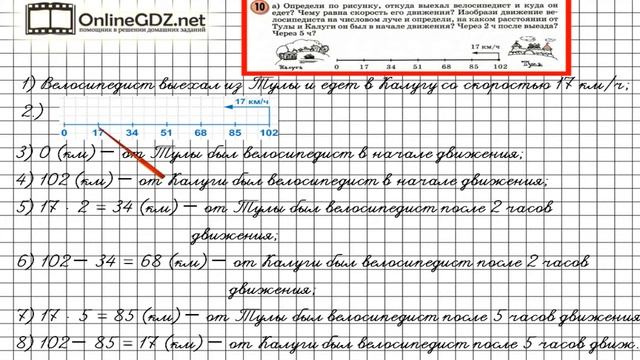 OnlineGDZ.net
помощник в решении домашних заданий
10 а) Определи по рисунку, откуда выехал велосипедист и куда он
едет? Чему равна скорость его движения? Изобрази движение ве-
лосипедиста на числовом луче и определи, на каком расстоянии от
Тулы и Калуги он был в начале движения? Через 2 ч после выезда?
Через 5 ч?
17 км/ч
Калуга
Тула
0 17 34 51 68 85 102
1) Велосипедист выехал из Тулы и едет в Калугу со скоростью 17 км/ч;
2.)
17 км/ч
0 17 34 51 68 85 102
3) 0 (км) — от Тулы был велосипедист в начале движения;
4) 102 (км) — от Калуги был велосипедист в начале движения;
5) 17 · 2 = 34 (км) — от Тулы был велосипедист после 2 часов
движения;
6) 102 — 34 = 68 (км) — от Калуги был велосипедист после 2 часов
движения;
7) 17 · 5 = 85 (км) — от Тулы был велосипедист после 5 часов движения
8) 102 — 85 = 17 (км) — от Калуги был велосипедист после 5 часов движ.